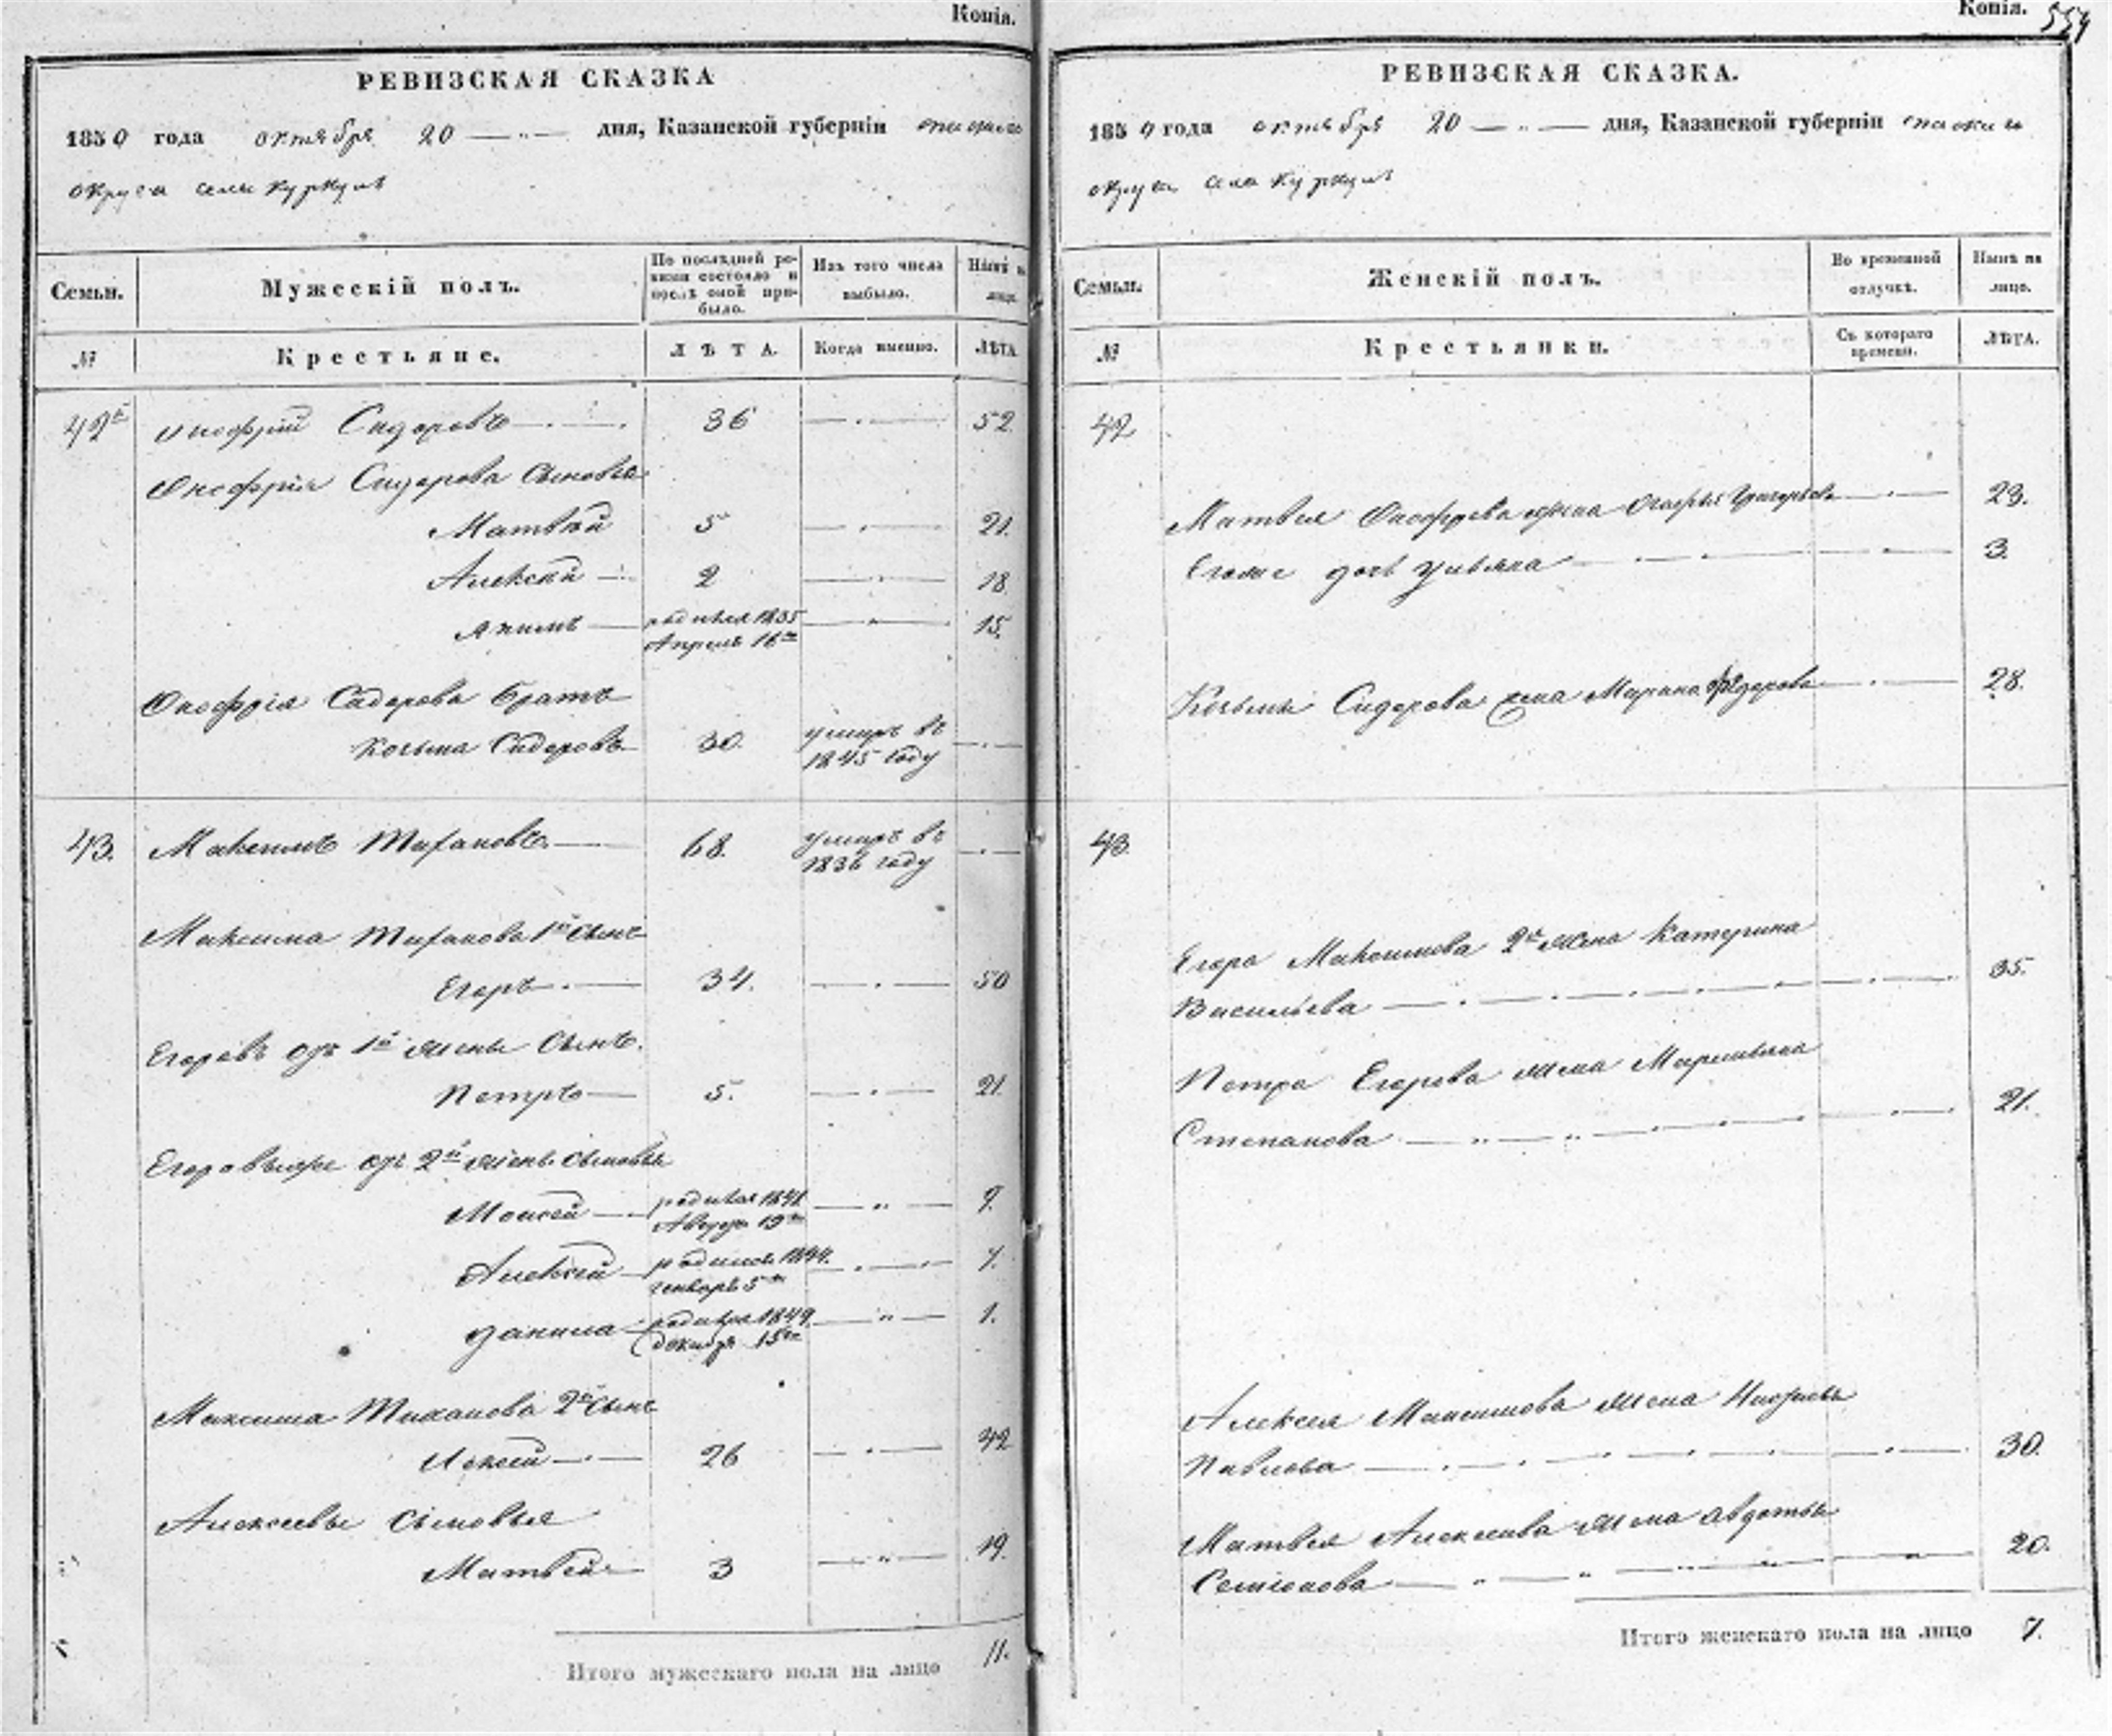 Копія.
РЕВИЗСКАЯ СКАЗКА
1850 года октября 20 — „ — дня, Казанской губерніи
округа села Куркуль
Семьи.
Мужескій полъ.
По послѣдней ре-
визіи состояло и
послѣ оной при-
было.
Изъ того числа
выбыло.
Нынѣ на
лицо.
№
Крестьяне.
ЛѢТА.
Когда именно.
ЛѢТА.
42й Онофрій Сидоровъ 36 52.
Онофрія Сидорова Сыновья
Матвѣй 5 21.
Алексѣй 2 18
Акимъ родился 1835 15.
Апрель 16го
Онофрія Сидорова братъ
Козьма Сидоровъ 30. умеръ въ
1845 году
43. Максимъ 68. умеръ въ
1836 году
Максима 1й сынъ
Егоръ 34. 50
Егоровъ отъ 1й жены сынъ.
Петръ 5. 21.
отъ 2й жены сыновья
Моисей родился 1841 9.
Августа 19го
Алексѣй родился 1844. 7.
генваря 5го
Данила родился 1849 1.
декабря 15го
Максима 2й сынъ
26 42
Алексеевы сыновья
Матвей 3 19.
Итого мужескаго пола на лицо 11.
Копія. 554
РЕВИЗСКАЯ СКАЗКА.
1850 года октября 20 — „ — дня, Казанской губерніи
округа села Куркуль
Семьи.
Женскій полъ.
Во временной
отлучкѣ.
Нынѣ на
лицо.
№
Крестьянки.
Съ котораго
времени.
ЛѢТА.
42
Матвея Онофрева жена Григорьева 23.
дочь Ульяна 3.
Козьмы Сидорова жена Марина Федорова 28.
43.
Егора Максимова 2я жена Катерина
Васильева 35.
Петра Егорова жена
Степанова 21.
Алексея Максимова жена
Павлова 30.
Матвея Алексеива жена Авдотья
Семіонова 20.
Итого женскаго пола на лицо 7.